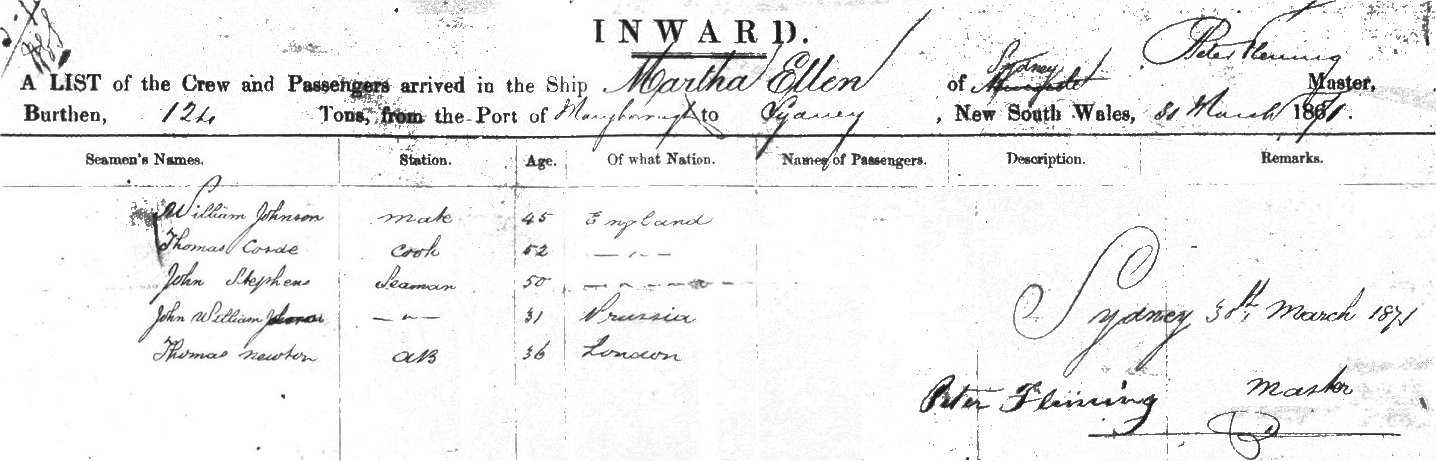 INWARD.
A LIST of the Crew and Passengers arrived in the Ship Martha Ellen of Sydney Peter Fleming Master,
Burthen, 124 Tons, from the Port of Maryborough to Sydney, New South Wales, 31 March 1871.
Seamen's Names. Station. Age. Of what Nation. Names of Passengers. Description. Remarks.
William Johnson mate 45 England
Thomas Corde cook 52 — " —
John Stephens Seaman 50 — " —
John William — " — 31 Prussia
Thomas newton AB 36 London
Sydney 30th March 1871
Peter Fleming Master